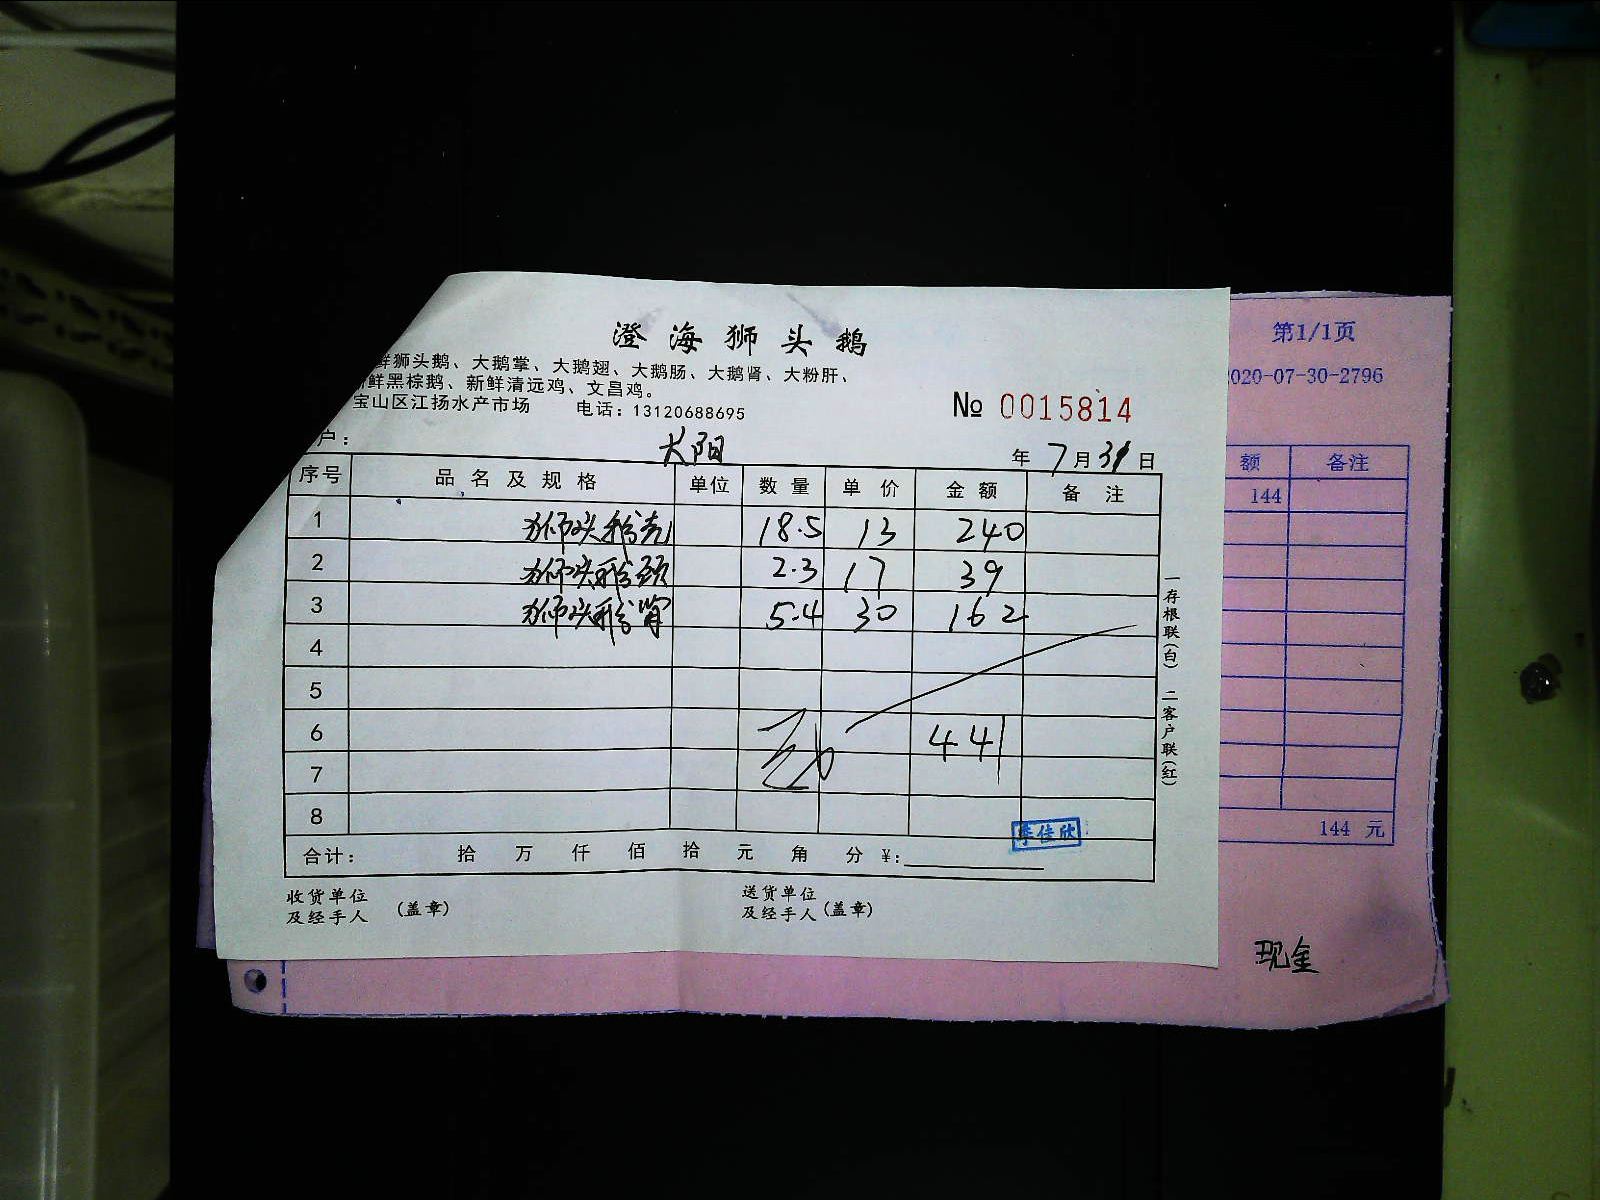 澄海狮头鹅
鲜狮头鹅、大鹅掌、大鹅翅、大鹅肠、大鹅肾、大粉肝、
鲜黑棕鹅、新鲜清远鸡、文昌鸡。
宝山区江扬水产市场 电话：13120688695
№ 0015814
户： 太阳 年 7 月 31 日
序号 品名及规格 单位 数量 单价 金额 备注
1 狮头鹅壳 18.5 13 240
2 狮头鹅颈 2.3 17 39
3 狮头鹅肾 5.4 30 162
4
5
6 441
7
8
合计： 拾 万 仟 佰 拾 元 角 分 ¥：
李佳欣
收货单位
及经手人 （盖章）
送货单位
及经手人（盖章）
一存根联（白） 二客户联（红）
第1/1页
020-07-30-2796
额 备注
144
144 元
现金